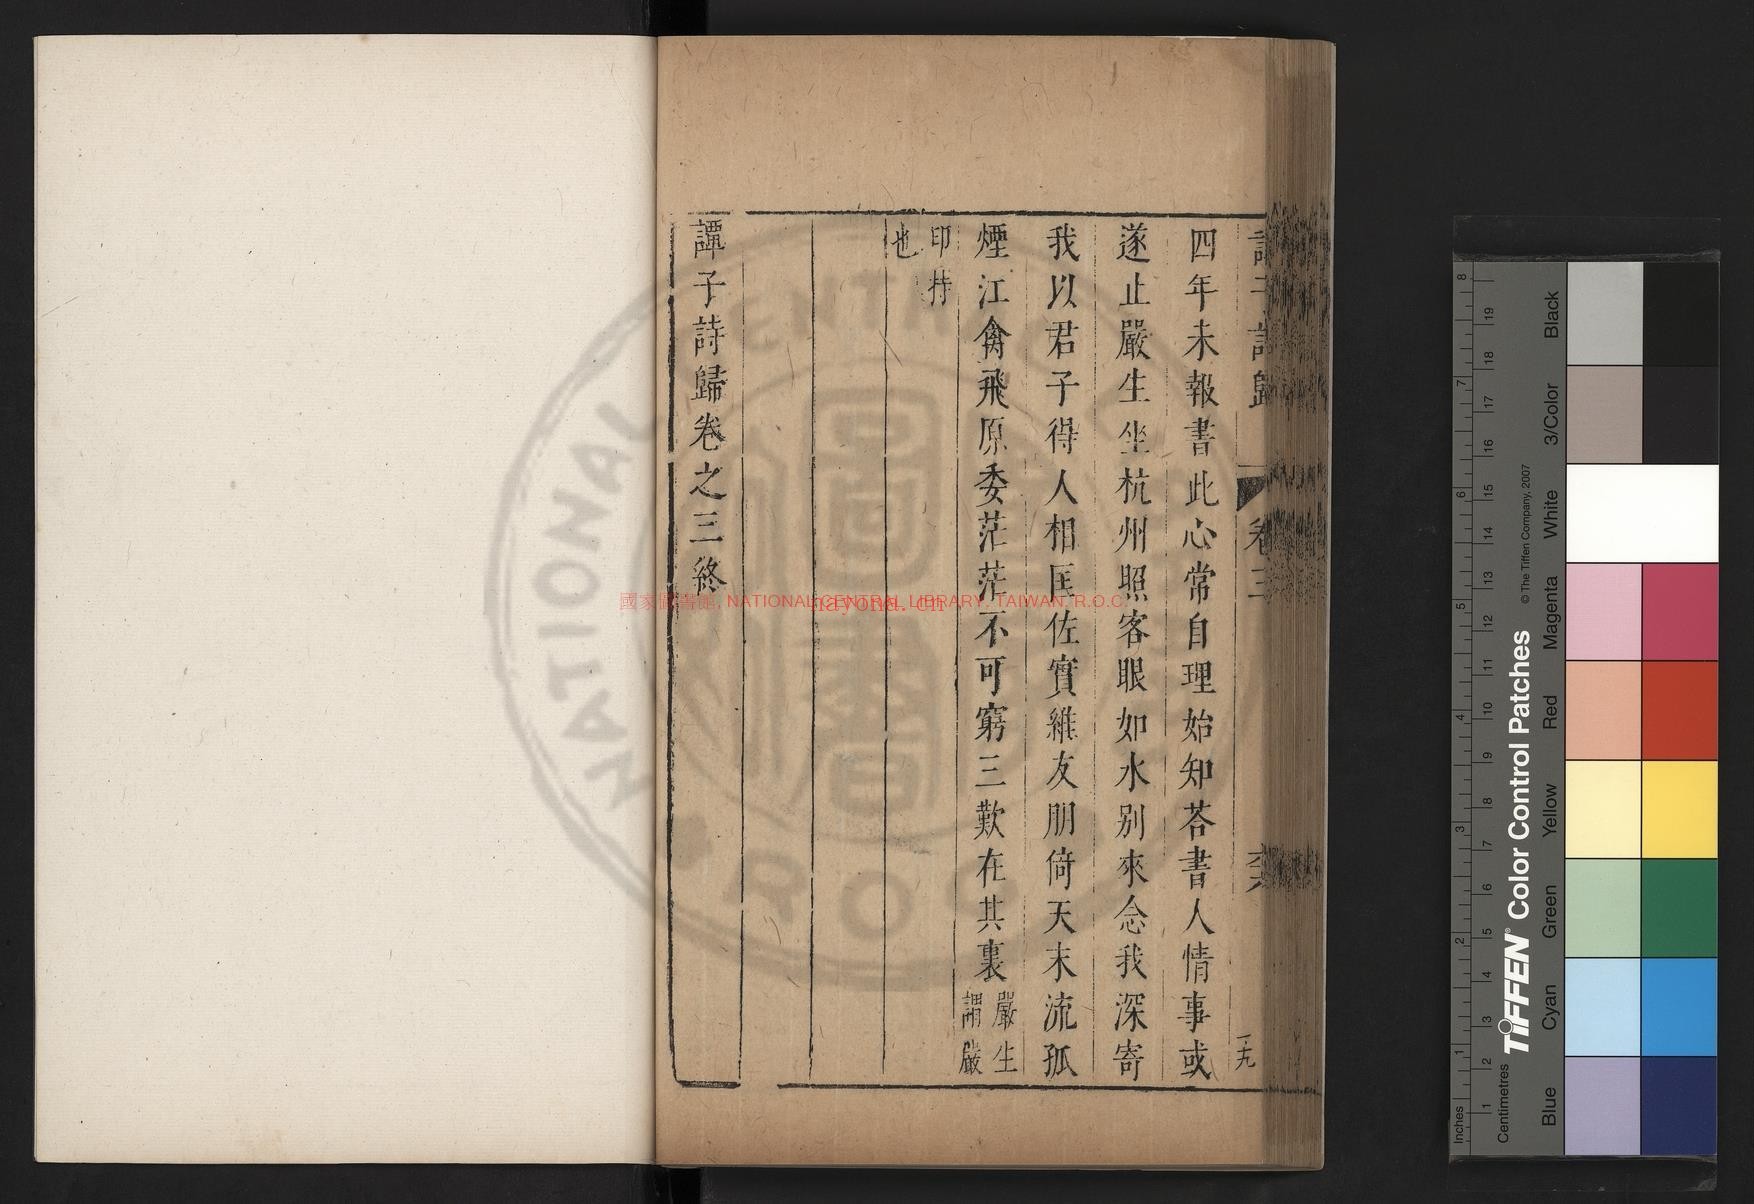 四年未報書此心常自理始知荅書人情事或
遂止嚴生坐杭州照客眼如水别來念我深寄
我以君子得人相匡佐實維友朋倚天末流孤
煙江禽飛原委茫茫不可窮三歎在其裏嚴生
謂嚴
印持
也
譚子詩歸卷之三終
卷三
十九
國家圖書館, NATIONAL CENTRAL LIBRARY, TAIWAN, R.O.C.
nayona.cn
NATIONAL CENTRAL
R O C
Inches
1 2 3 4 5 6 7 8
Centimetres
1 2 3 4 5 6 7 8 9 10 11 12 13 14 15 16 17 18 19
TIFFEN® Color Control Patches
© The Tiffen Company, 2007
Blue
Cyan
Green
Yellow
Red
Magenta
White
3/Color
Black